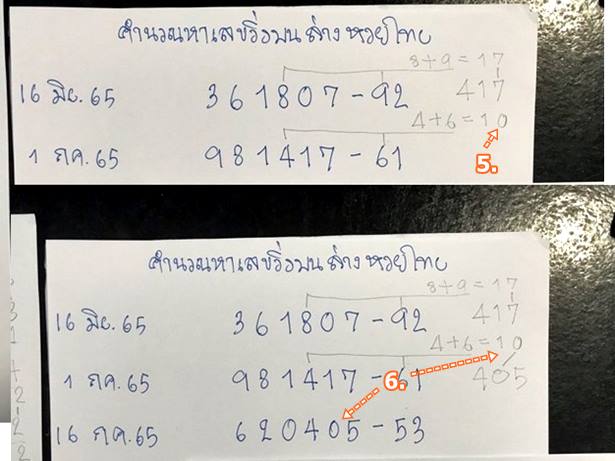 คำนวณหาเลขวิ่งบน ล่าง หวยไทย
8+9 = 17
16 มิย. 65 361807 - 92 417
4+6 = 10
1 กค. 65 981417 - 61
5.
คำนวณหาเลขวิ่งบน ล่าง หวยไทย
8+9 = 17
16 มิย. 65 361807 - 92 417
4+6 = 10
1 กค. 65 981417 - 61 405
6.
16 กค. 65 620405 - 53